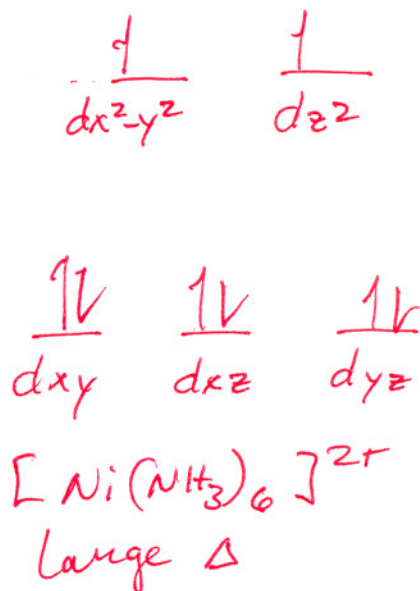 1 1
dx²-y² dz²
1L 1L 1L
dxy dxz dyz
[Ni(NH₃)₆]²⁺
Large Δ